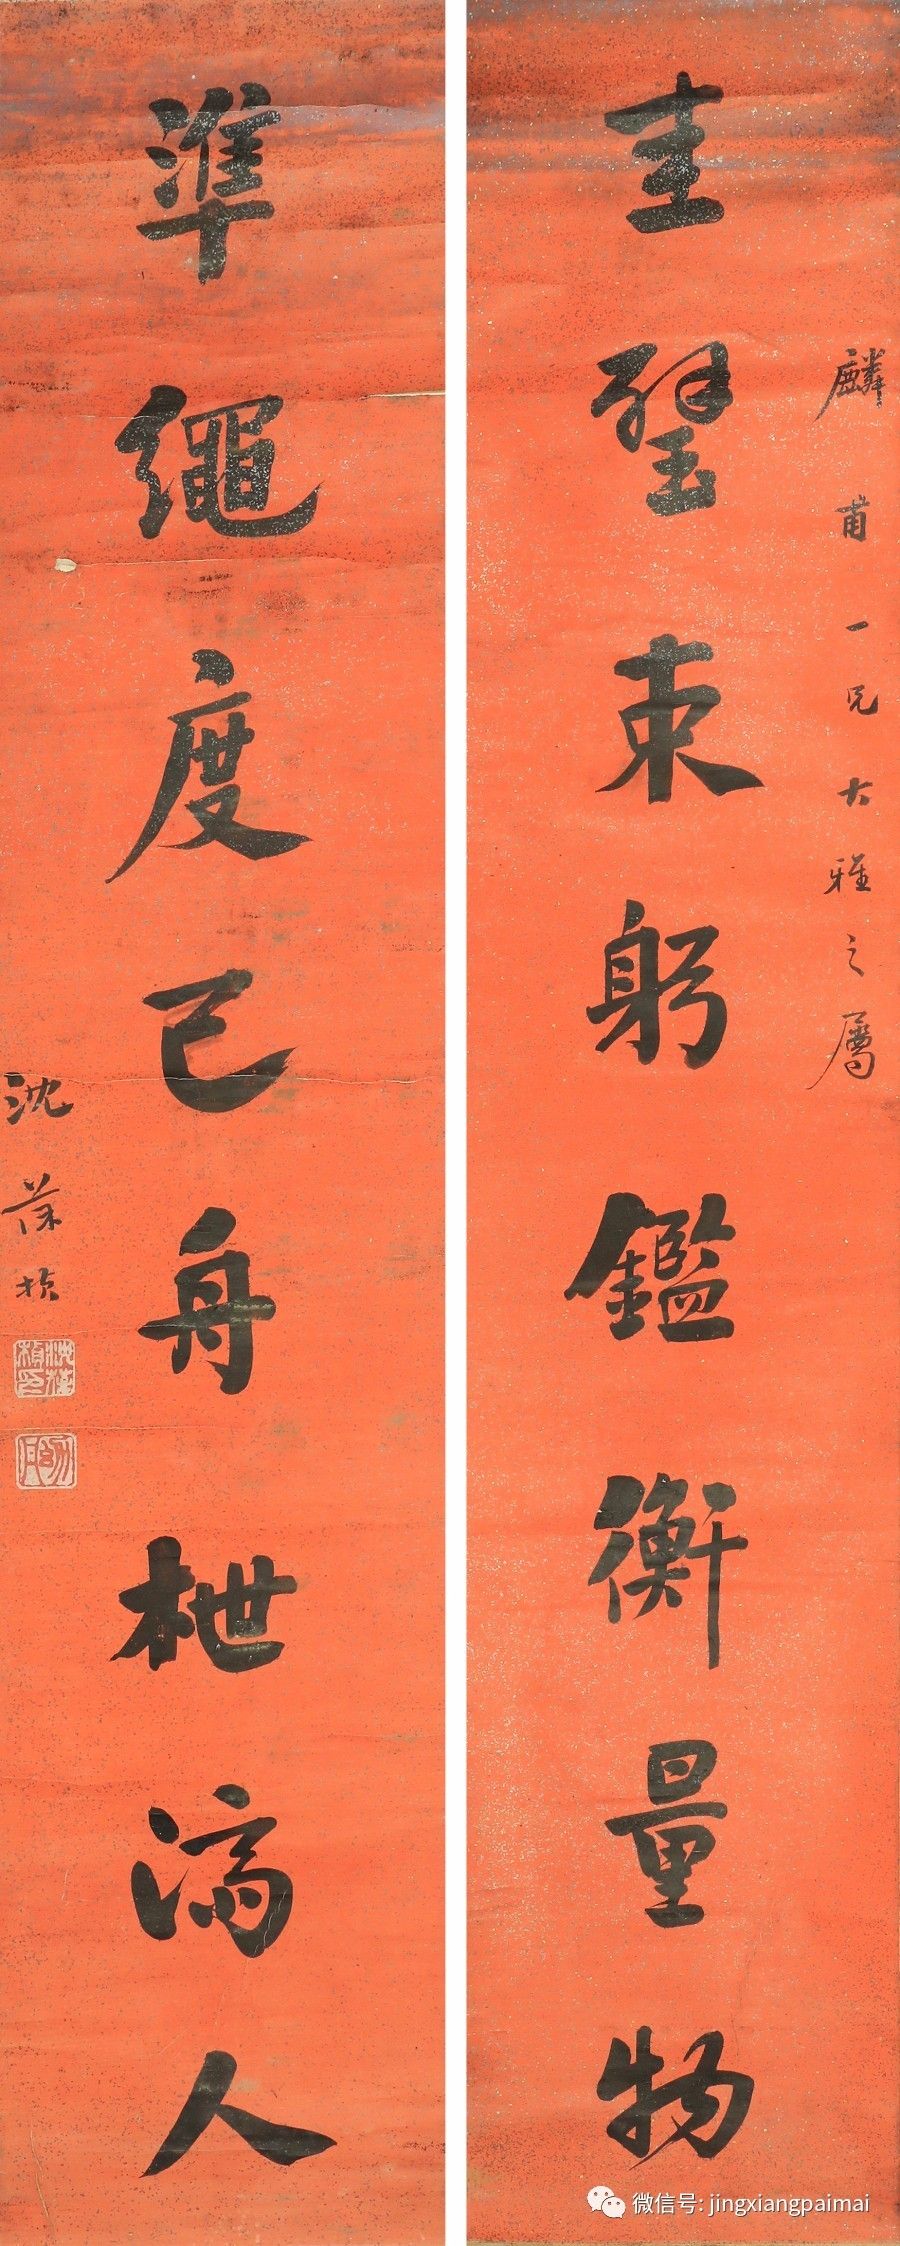 麟甫一兄大雅之屬
圭璧束躬鑑衡量物
準繩度己舟枻濟人
沈葆楨
沈葆楨印
微信号: jingxiangpaimai